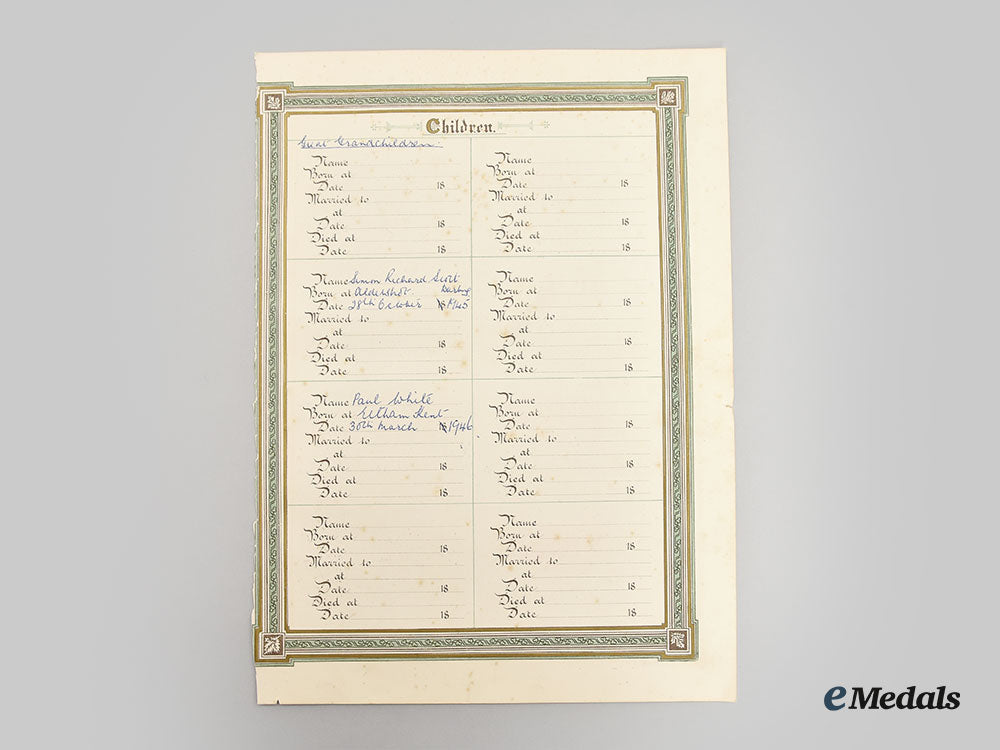 Children.
Great Grandchildren:
Name
Born at
Date 18
Married to
at
Date 18
Died at
Date 18
Name Simon Richard Scott
Born at Aldershot.
Date 28th October 18 1945
Married to
at
Date 18
Died at
Date 18
Name Paul White
Born at Eltham Kent
Date 30th March 18 1946
Married to
at
Date 18
Died at
Date 18
Name
Born at
Date 18
Married to
at
Date 18
Died at
Date 18
Name
Born at
Date 18
Married to
at
Date 18
Died at
Date 18
Name
Born at
Date 18
Married to
at
Date 18
Died at
Date 18
Name
Born at
Date 18
Married to
at
Date 18
Died at
Date 18
Name
Born at
Date 18
Married to
at
Date 18
Died at
Date 18
eMedals